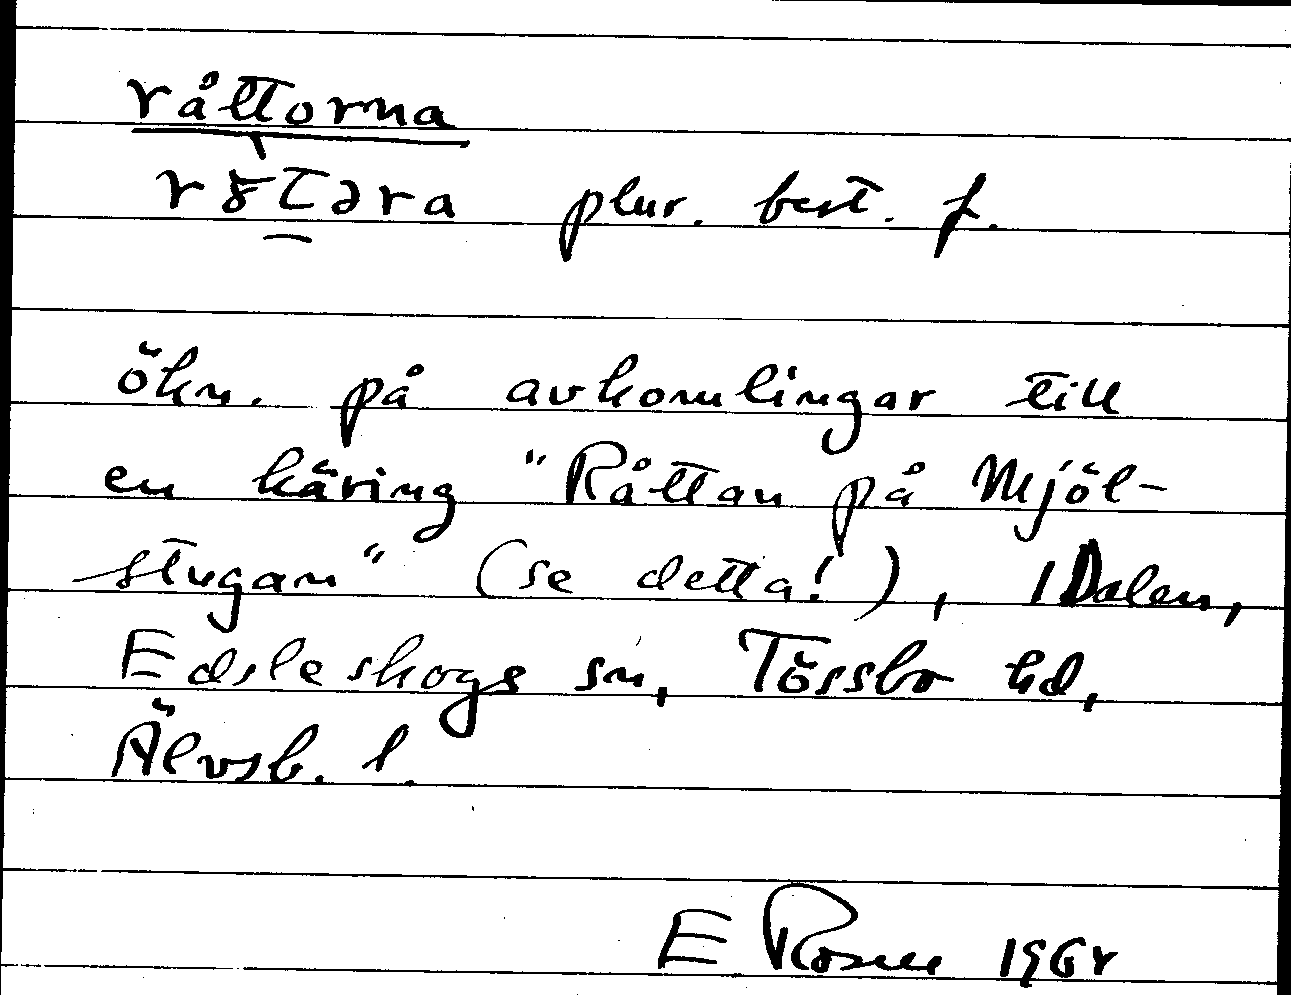 råttorna
plur. best. f.
ökn. på avkomlingar till
en käring "Råttan på Mjöl-
stugan" (se detta!), Dalen,
Edsleskogs sn, Tössbo hd,
Älvsb. l.
E